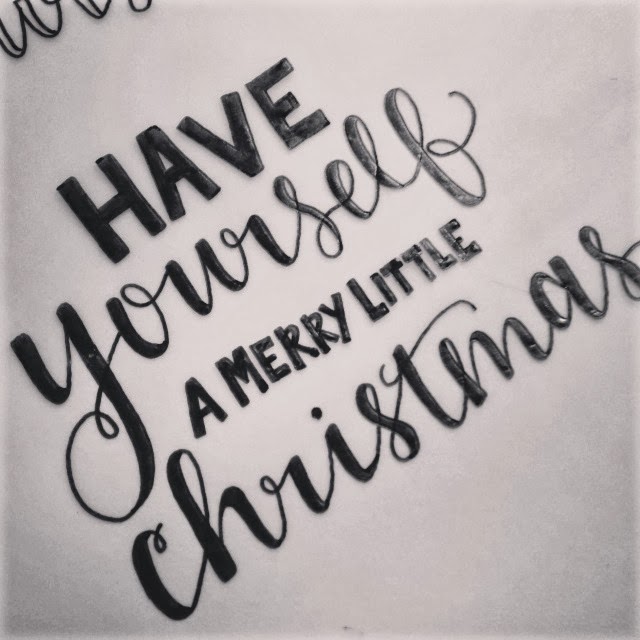 HAVE
Yourself
A MERRY LITTLE
Christmas